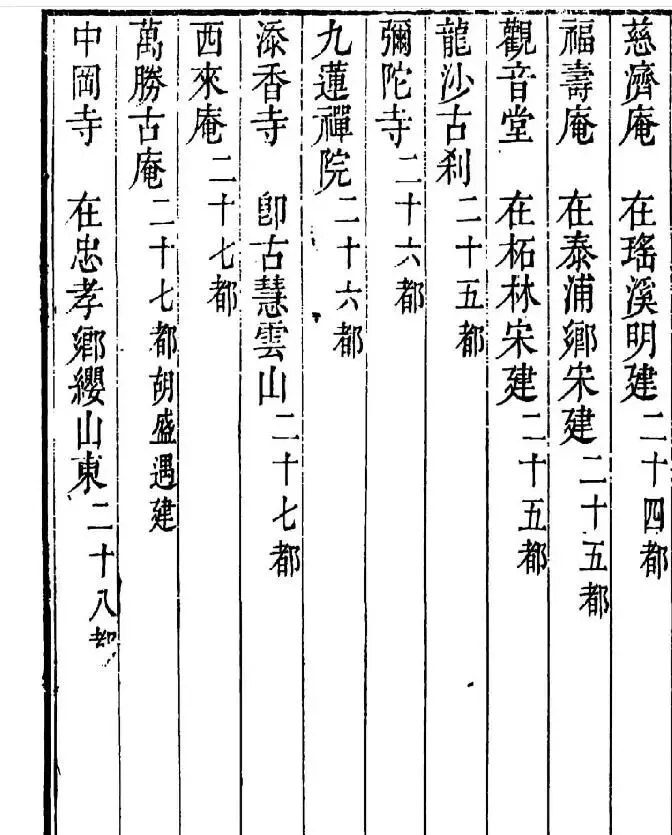 慈濟庵　在瑤溪明建二十四都
福壽庵　在泰浦鄉宋建二十五都
觀音堂　在柘林宋建二十五都
龍沙古刹二十五都
彌陀寺二十六都
九蓮禪院二十六都
添香寺　卽古慧雲山二十七都
西來庵二十七都
萬勝古庵二十七都胡盛遇建
中岡寺　在忠孝鄉纓山東二十八都